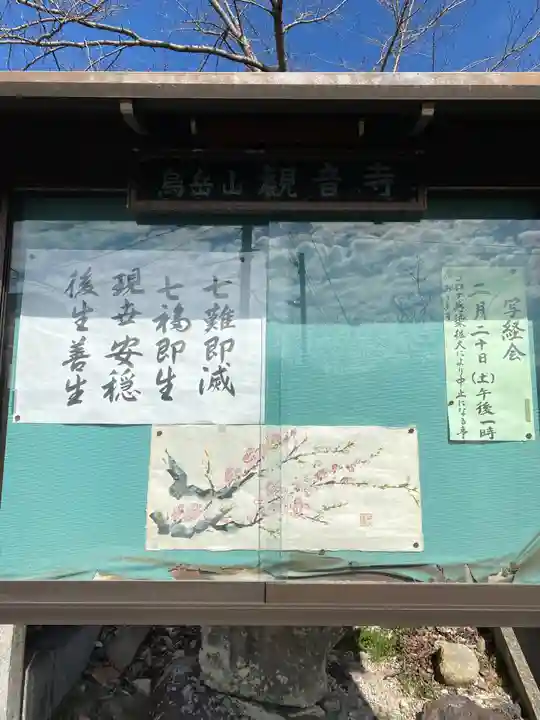 鳥岳山 観音寺
写経会
二月二十日(土)午後一時
コロナ感染拡大により中止になる事
七難即滅
七福即生
現世安穏
後生善生